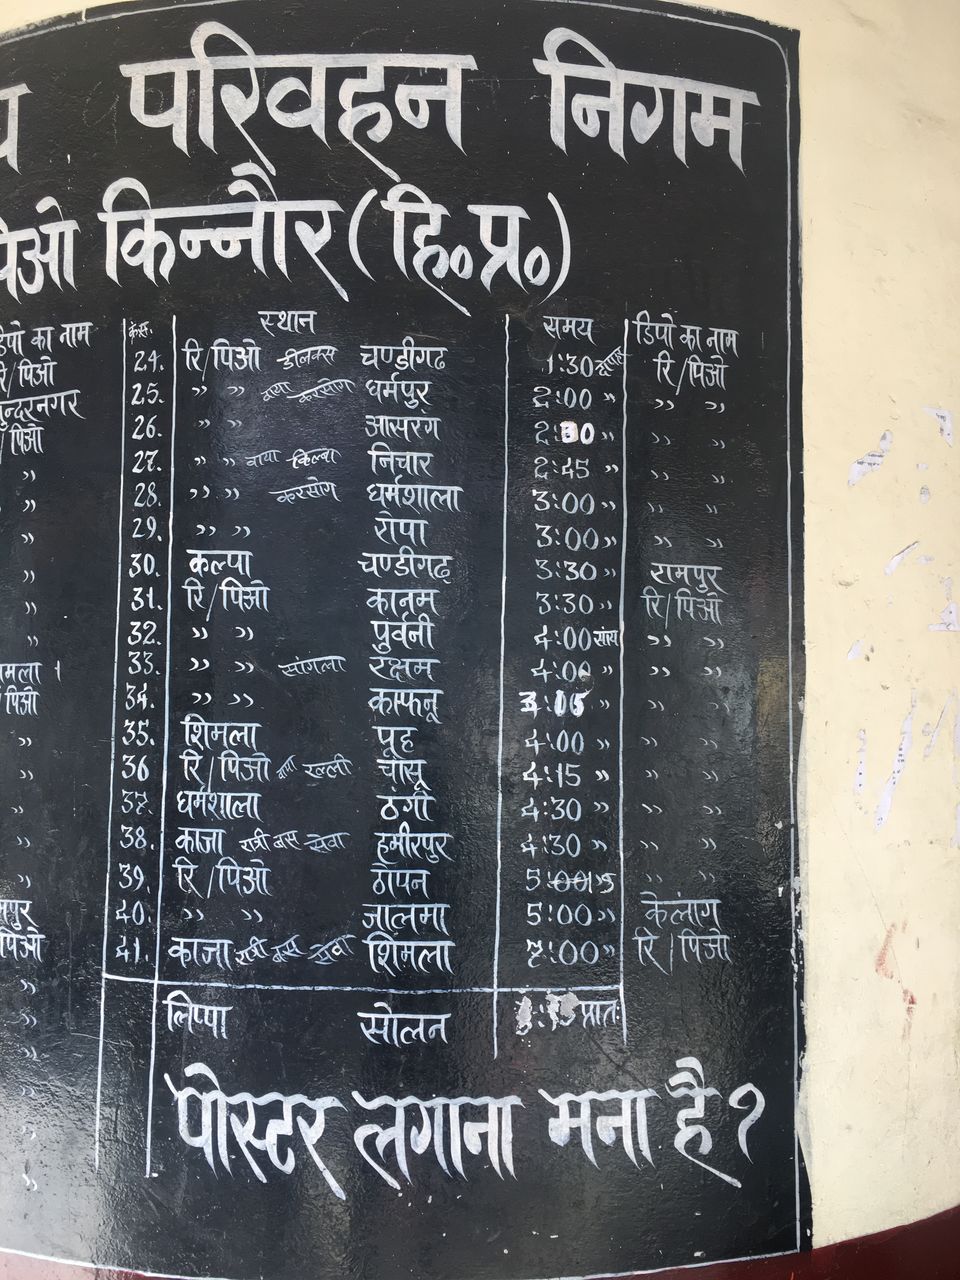 परिवहन निगम
पिओ किन्नौर (हि॰प्र॰)
डिपो का नाम क्र.सं. स्थान समय डिपो का नाम
रि/पिओ 24. रि/पिओ डीलक्स चण्डीगढ 1:30 रि/पिओ
सुन्दरनगर 25. " " वाया करसोग धर्मपुर 2:00 " " "
/पिओ 26. " " आसरंग 2:30 " " "
" 27. " " वाया किल्बा निचार 2:45 " " "
" 28. " " करसोग धर्मशाला 3:00 " " "
" 29. " " रोपा 3:00 " " "
" 30. कल्पा चण्डीगढ़ 3:30 " रामपुर
" 31. रि/पिओ कानम 3:30 " रि/पिओ
" 32. " " पुर्वनी 4:00 सांय " "
33. " " सांगला रक्षम 4:00 " " "
/पिओ 34. " " काफनू " " "
" 35. शिमला पूह 4:00 " " "
" 36 रि/पिओ वाया रल्ली चांसू 4:15 " " "
" 37. धर्मशाला ठंगी 4:30 " " "
" 38. काजा रात्री बस सेवा हमीरपुर 4:30 " " "
" 39. रि/पिओ ठोपन " "
40. " " जालमा 5:00 " केलांग
पिओ 41. काजा रात्री बस सेवा शिमला 7:00 " रि/पिओ
"
" लिप्पा सोलन प्रातः
"
"
"
"
पोस्टर लगाना मना है?